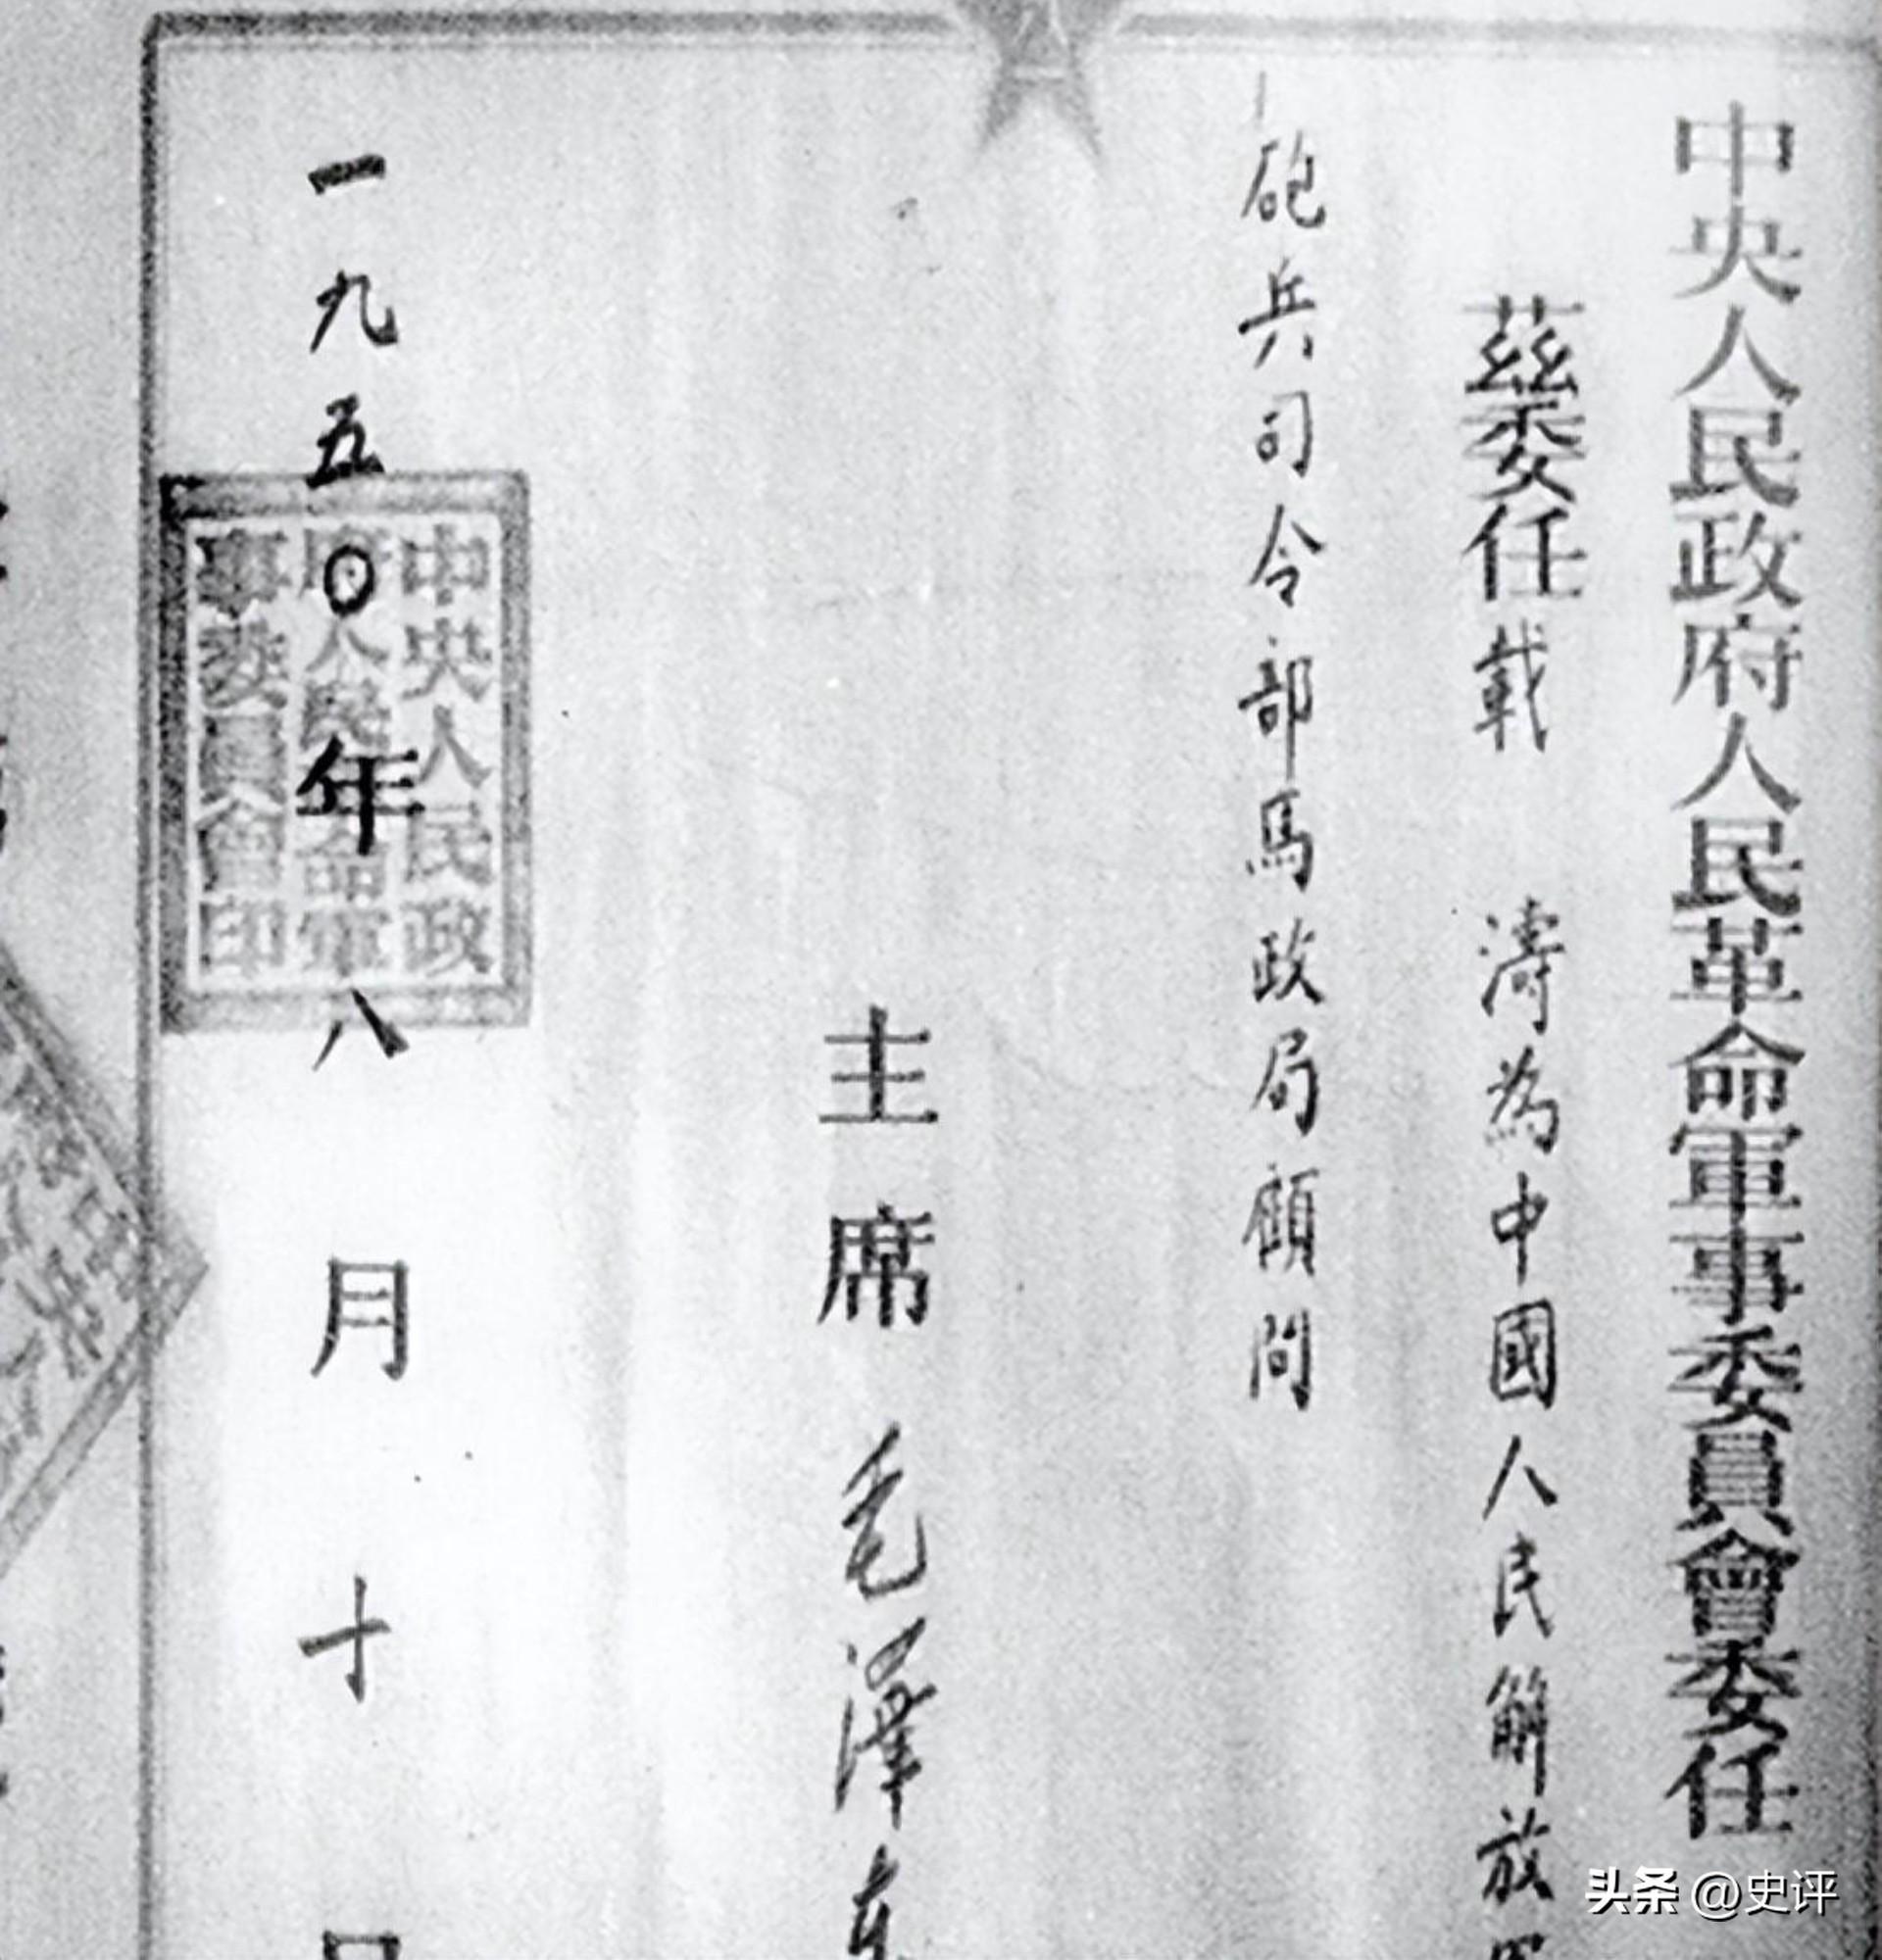 中央人民政府人民革命軍事委員會委任
茲委任載 濤為中國人民解放
砲兵司令部馬政局顧問
主席 毛澤東
一九五〇年八月十
中央人民政
府人民命軍
事委員會印
头条 @史评